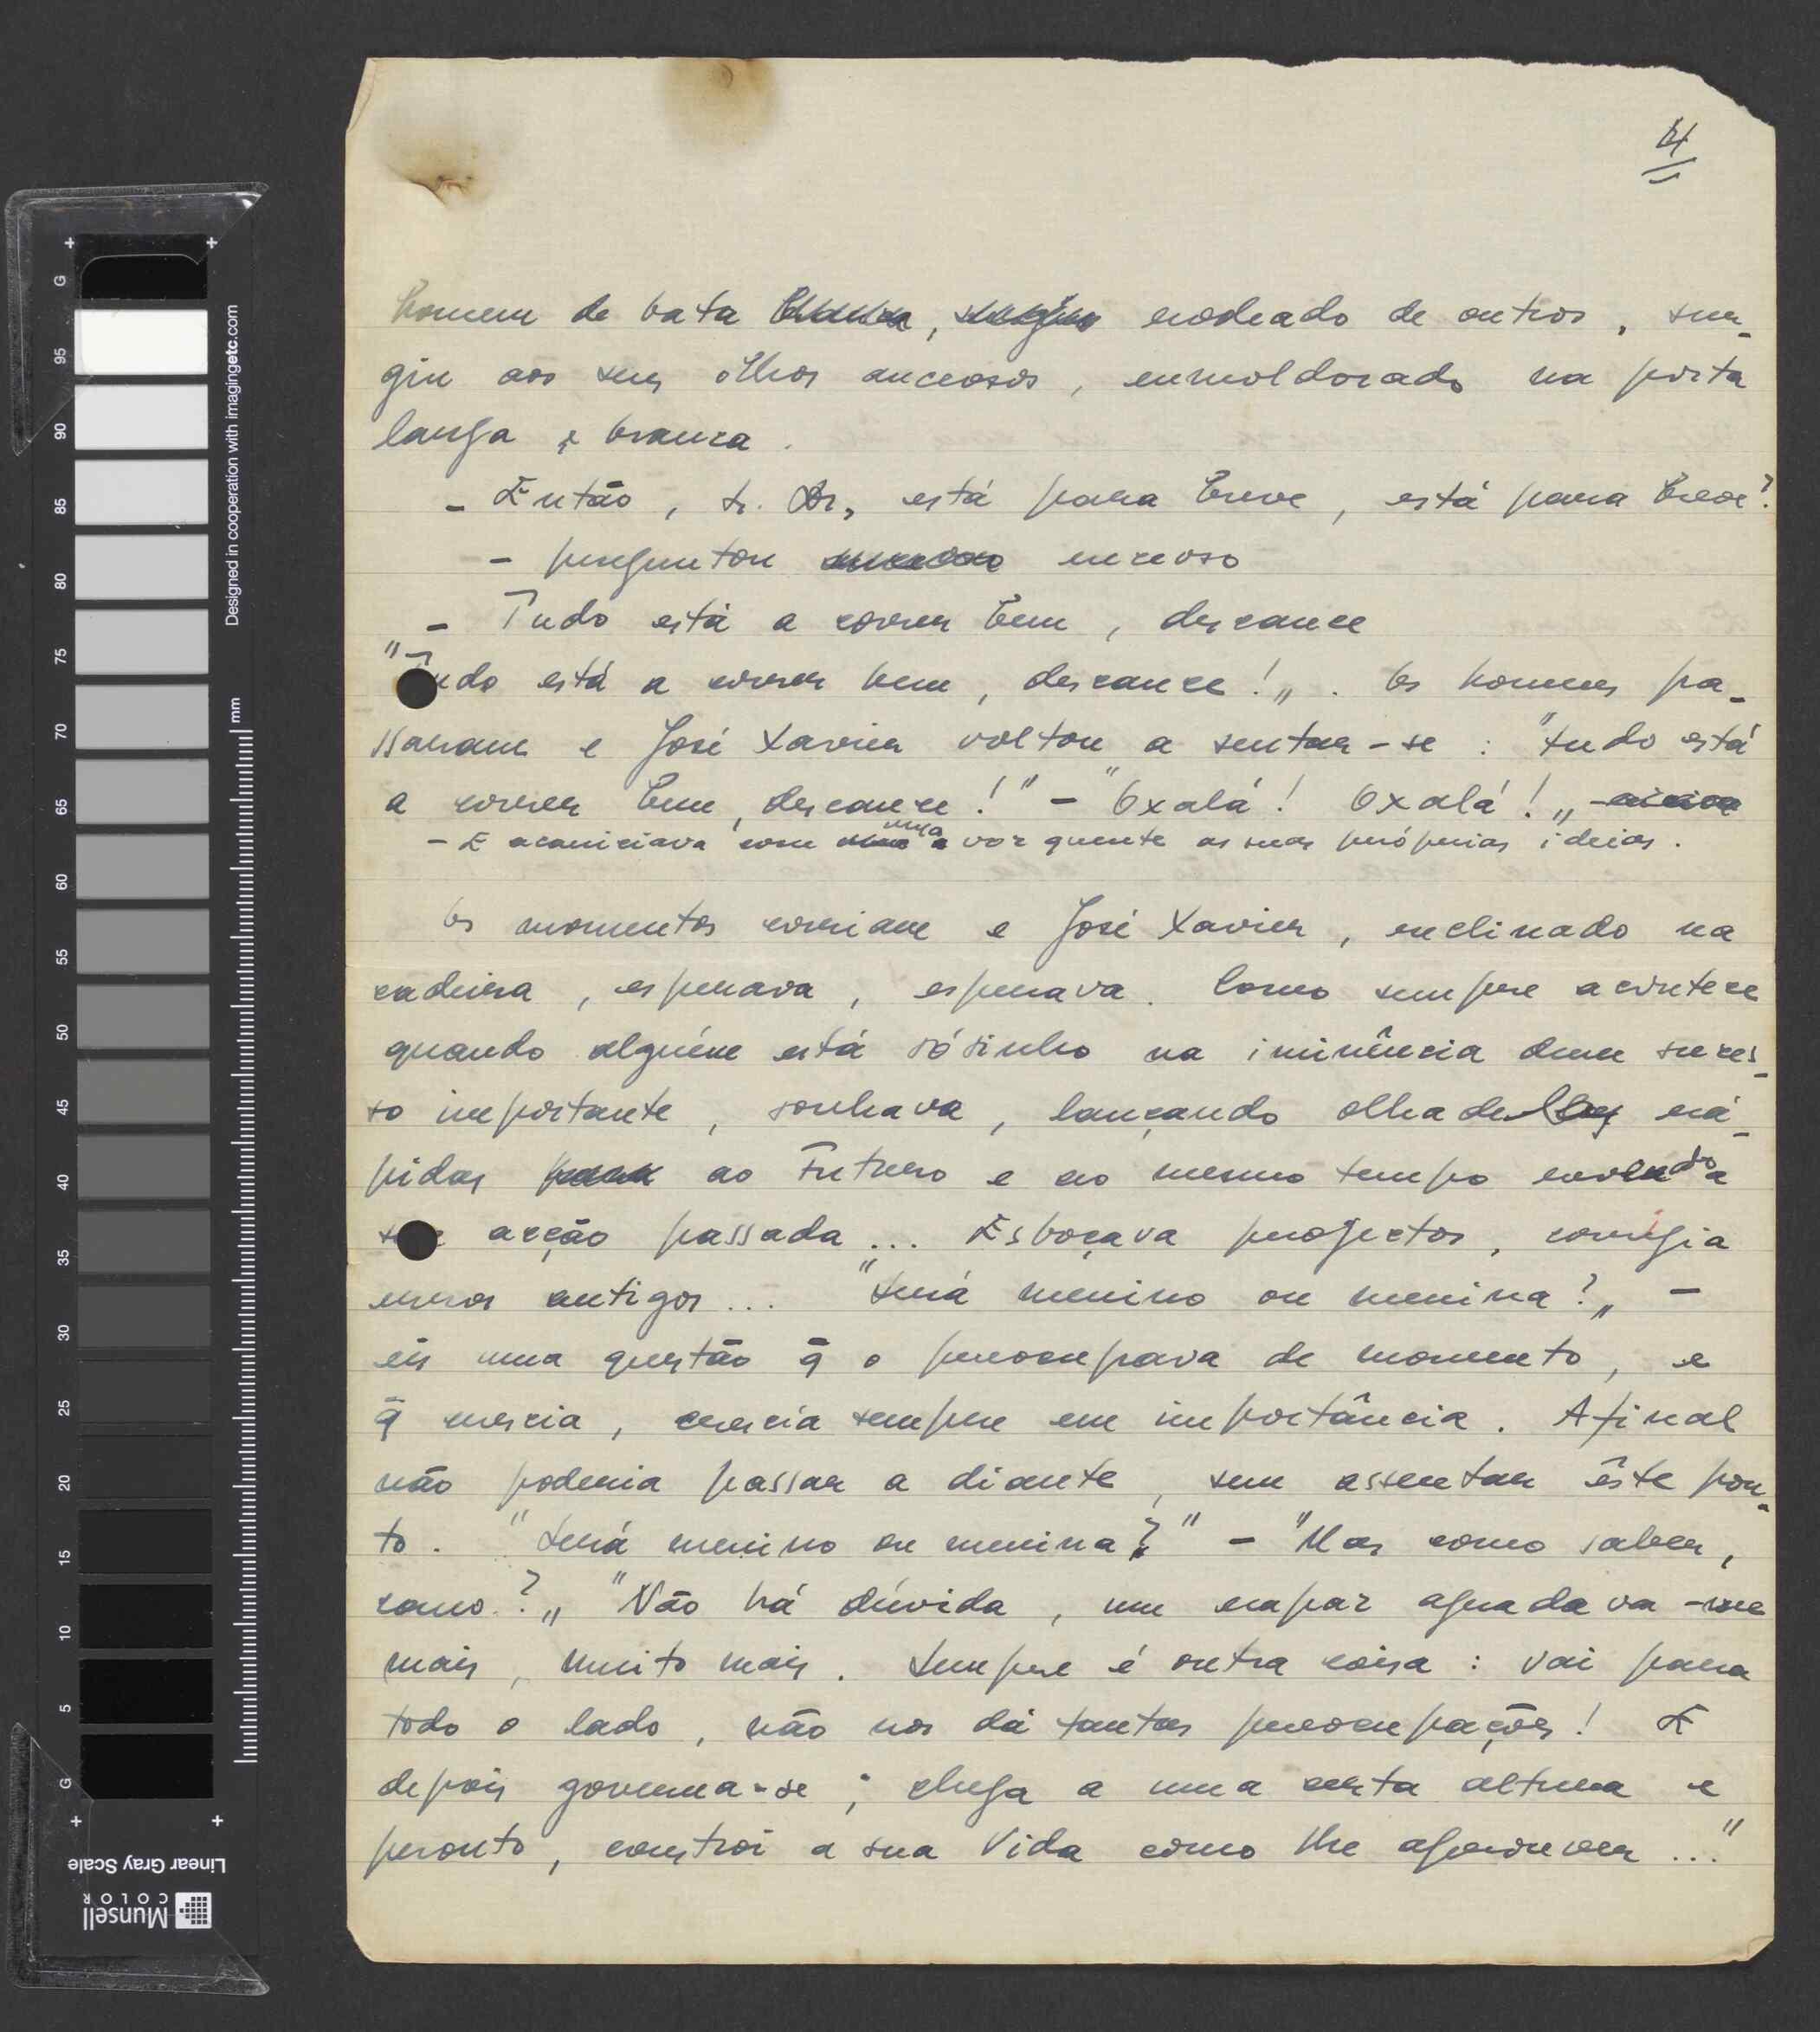 4
homem de bata branca, surgiu rodeado de outros, sur-
giu aos seus olhos anceosos, enmoldorado na porta
larga e branca.
- Então, sr. Dr., está para breve, está para breve?
- preguntou nervoso
- Tudo está a correr bem, descance
"Tudo está a correr bem, descance!„. Os homens pa-
ssaram e José Xavier voltou a sentar-se: "tudo está
a correr bem, descance!" - "Oxalá! Oxalá!„
- E acariciava com uma voz quente as suas próprias ideias.
Os momentos corriam e José Xavier, reclinado na
cadeira, esperava, esperava. Como sempre acontece
quando alguém está sósinho na iminência dum suces-
so importante, sonhava, lançando olhadelas rá-
pidas ao Futuro e ao mesmo tempo revendo a
sua acção passada... Esboçava projectos, corrigia
erros antigos... "Será menino ou menina?„ -
eis uma questão q̃ o preocupava de momento, e
q̃ crescia, crescia sempre em importância. Afinal
não poderia passar a diante, sem assentar êste pon-
to. "Será menino ou menina?" - "Mas como saber,
como?„ "Não há dúvida, um rapaz agradava-me
mais, muito mais. Sempre é outra coisa: vai para
todo o lado, não nos dá tantas preocupações! E
depois governa-se; chega a uma certa altura e
pronto, constroi a sua Vida como lhe aprouver..."
Designed in cooperation with imagingetc.com
mm
G
95
90
85
80
75
70
65
60
55
50
45
40
35
30
25
20
15
10
5
G
Linear Gray Scale
Munsell
COLOR